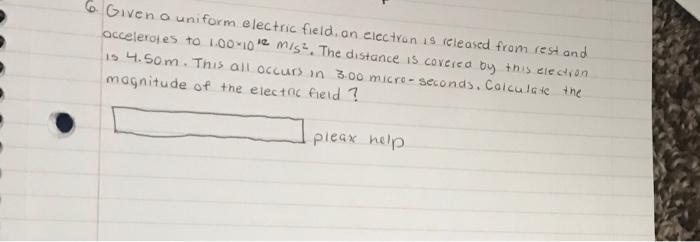 6. Given a uniform electric field, an electron is released from rest and
accelerates to 1.00×10¹² m/s². The distance is covered by this electron
is 4.50m. This all occurs in 3.00 micro-seconds. Calculate the
magnitude of the electric field ?
pleax help